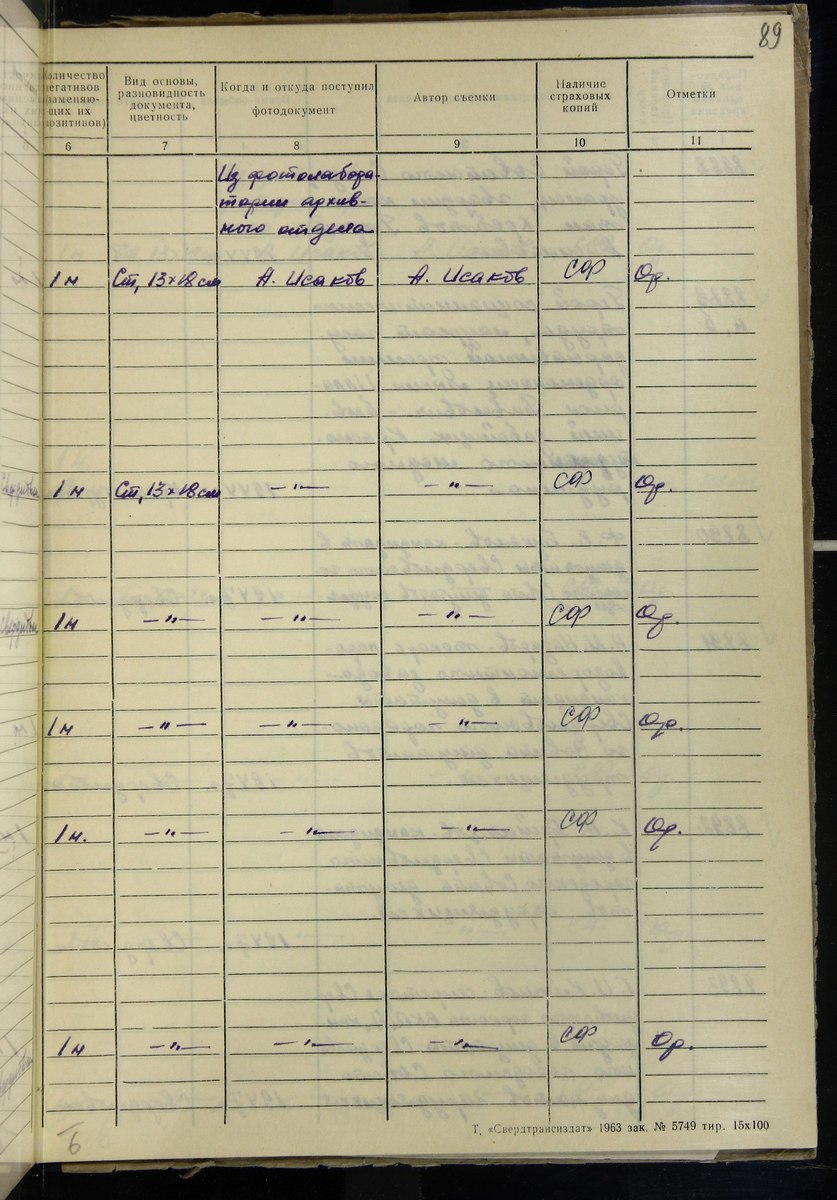 89
Количество негативов (заменяющих их позитивов)
Вид основы, разновидность документа, цветность
Когда и откуда поступил фотодокумент
Автор съемки
Наличие страховых копий
Отметки
6 7 8 9 10 11
Из фотолабора-
тории архив-
ного отдела
1 н Ст, 13×18 см А. Исаков А. Исаков СФ Ор.
1 н Ст, 13×18 см —"— —"— СФ Ор.
1 н —"— —"— —"— СФ Ор.
1 н —"— —"— —"— СФ Ор.
1 н. —"— —"— —"— СФ Ор.
1 н —"— —"— —"— СФ Ор.
Т. «Свердтрансиздат» 1963 зак. № 5749 тир. 15х100